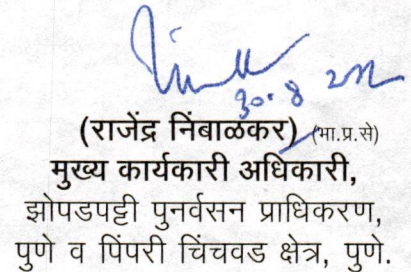 ३०.8
(राजेंद्र निंबाळकर) (भा.प्र.से)
मुख्य कार्यकारी अधिकारी,
झोपडपट्टी पुनर्वसन प्राधिकरण,
पुणे व पिंपरी चिंचवड क्षेत्र, पुणे.